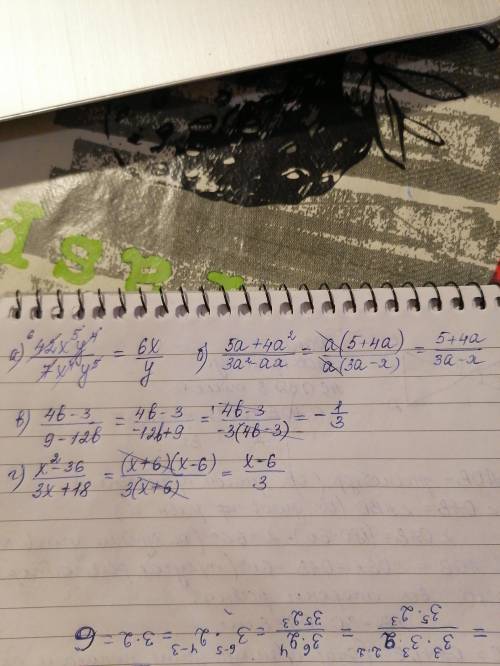 а) 42x⁵y⁴/7x⁴y⁵ = 6x/y б) 5a+4a²/3a²-ax = a(5+4a)/a(3a-x) = 5+4a/3a-x
в) 4b-3/9-12b = 4b-3/-12b+9 = 4b-3/-3(4b-3) = -1/3
г) x²-36/3x+18 = (x+6)(x-6)/3(x+6) = x-6/3
= 3³·3³·2²·²/3⁵·2³ = 3⁶·2⁴/3⁵2³ = 3⁶⁻⁵·2⁴⁻³ = 3·2 = 6